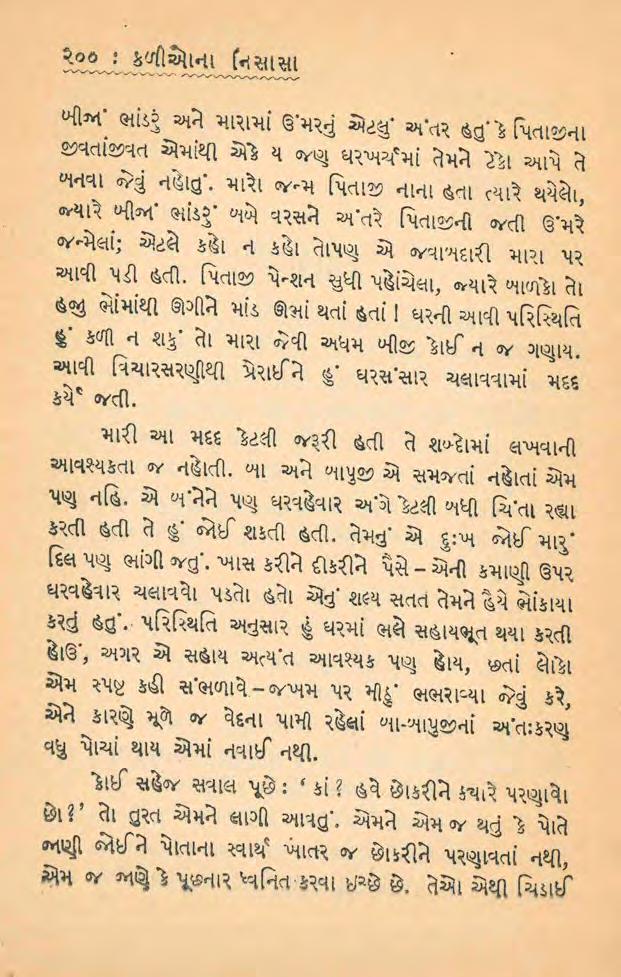 ૨૦૦ : કળીઓના નિસાસા
બીજાં ભાંડરું અને મારામાં ઉંમરનું એટલું અંતર હતું કે પિતાજીના
જીવતાંજીવત એમાંથી એકે ય જણ ઘરખર્ચમાં તેમને ટેકો આપે તે
બનવા જેવું નહોતું. મારો જન્મ પિતાજી નાના હતા ત્યારે થયેલો,
જ્યારે બીજાં ભાંડરું બબે વરસને અંતરે પિતાજીની જતી ઉંમરે
જન્મેલાં; એટલે કહો ન કહો તોપણ એ જવાબદારી મારા પર
આવી પડી હતી. પિતાજી પેન્શન સુધી પહોંચેલા, જ્યારે બાળકો તો
હજુ ભોંમાંથી ઊગીને માંડ ઊભાં થતાં હતાં! ઘરની આવી પરિસ્થિતિ
હું કળી ન શકું તો મારા જેવી અધમ બીજી કોઈ ન જ ગણાય.
આવી વિચારસરણીથી પ્રેરાઈને હું ઘરસંસાર ચલાવવામાં મદદ
કર્યે જતી.
મારી આ મદદ કેટલી જરૂરી હતી તે શબ્દોમાં લખવાની
આવશ્યકતા જ નહોતી. બા અને બાપુજી એ સમજતાં નહોતાં એમ
પણ નહિ. એ બંનેને પણ ઘરવહેવાર અંગે કેટલી બધી ચિંતા રહ્યા
કરતી હતી તે હું જોઈ શકતી હતી. તેમનું એ દુઃખ જોઈ મારું
દિલ પણ ભાંગી જતું. ખાસ કરીને દીકરીને પૈસે – એની કમાણી ઉપર
ઘરવહેવાર ચલાવવો પડતો હતો એનું શલ્ય સતત તેમને હૈયે ભોંકાયા
કરતું હતું. પરિસ્થિતિ અનુસાર હું ઘરમાં ભલે સહાયભૂત થયા કરતી
હોઉં, અગર એ સહાય અત્યંત આવશ્યક પણ હોય, છતાં લોકો
એમ સ્પષ્ટ કહી સંભળાવે – જખમ પર મીઠું ભભરાવ્યા જેવું કરે,
એને કારણે મૂળે જ વેદના પામી રહેલાં બા-બાપુજીનાં અંતઃકરણ
વધુ પોચાં થાય એમાં નવાઈ નથી.
કોઈ સહેજ સવાલ પૂછે : ‘ કાં ? હવે છોકરીને ક્યારે પરણાવો
છો ?’ તો તુરત એમને લાગી આવતું. એમને એમ જ થતું કે પોતે
જાણી જોઈને પોતાના સ્વાર્થ ખાતર જ છોકરીને પરણાવતાં નથી,
એમ જ જાણે કે પૂછનાર ધ્વનિત કરવા ઇચ્છે છે. તેઓ એથી ચિડાઈ